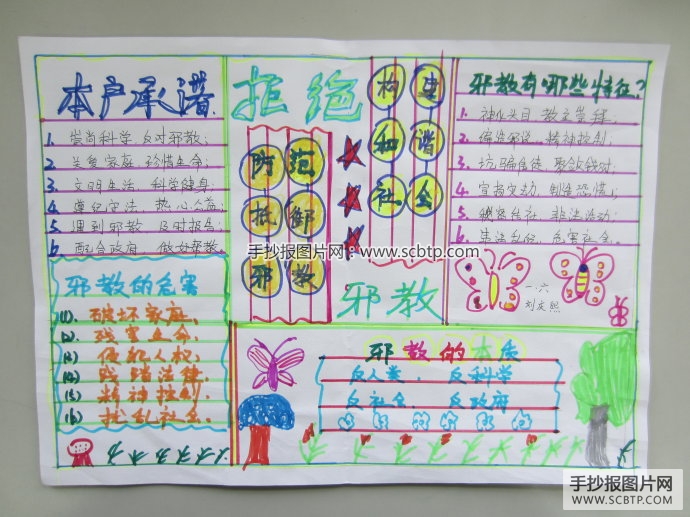 本户承诺
1. 崇尚科学 反对邪教;
2. 关爱家庭 珍惜生命;
3. 文明生活 科学健身;
4. 遵纪守法 热心公益;
5. 遇到邪教 及时报告;
6. 配合政府 做好帮教.
邪教的危害
(1). 破坏家庭,
(2). 残害生命,
(3) 侵犯人权;
(4) 践踏法律,
(5) 精神控制,
(6) 扰乱社会。
拒绝
邪教
防范
抵御
邪教
构建
和谐
社会
手抄报图片网:www.scbtp.com
邪教有哪些特征?
1. 神化头目 教主崇拜;
2. 编造邪说 精神控制;
3. 坑骗信徒 聚敛钱财;
4. 宣扬灾劫 制造恐慌;
5. 秘密结社 非法活动;
6. 危害社会。
一.六
刘庆熙
邪教的本质
反人类, 反科学
反社会 反政府
手抄报图片网
WWW.SCBTP.COM